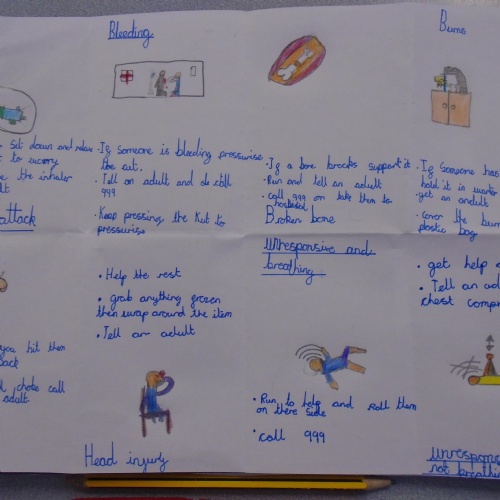 Bleeding
Burns
sit down and relax
to worry
the inhaler
attack
. If someone is bleeding pressurise
the cut.
. Tell an adult and do call
999
. Keep pressing the Kut to
pressurise
. If a bone brocks support it
. Run and tell an adult
. call 999 or take them to
hospital
Broken bone
. If someone has
hold it in water
get an adult
. cover the burn
plastic bag
you hit them
back
choke call
adult.
• Help the rest
• grab anything frozen
then wrap around the item
• Tell an adult
Head injury
Unresponsive and
breathing
• Run to help and roll them
on there side
• call 999
• get help
• Tell an ad
chest comp
Unrespons
not breathin